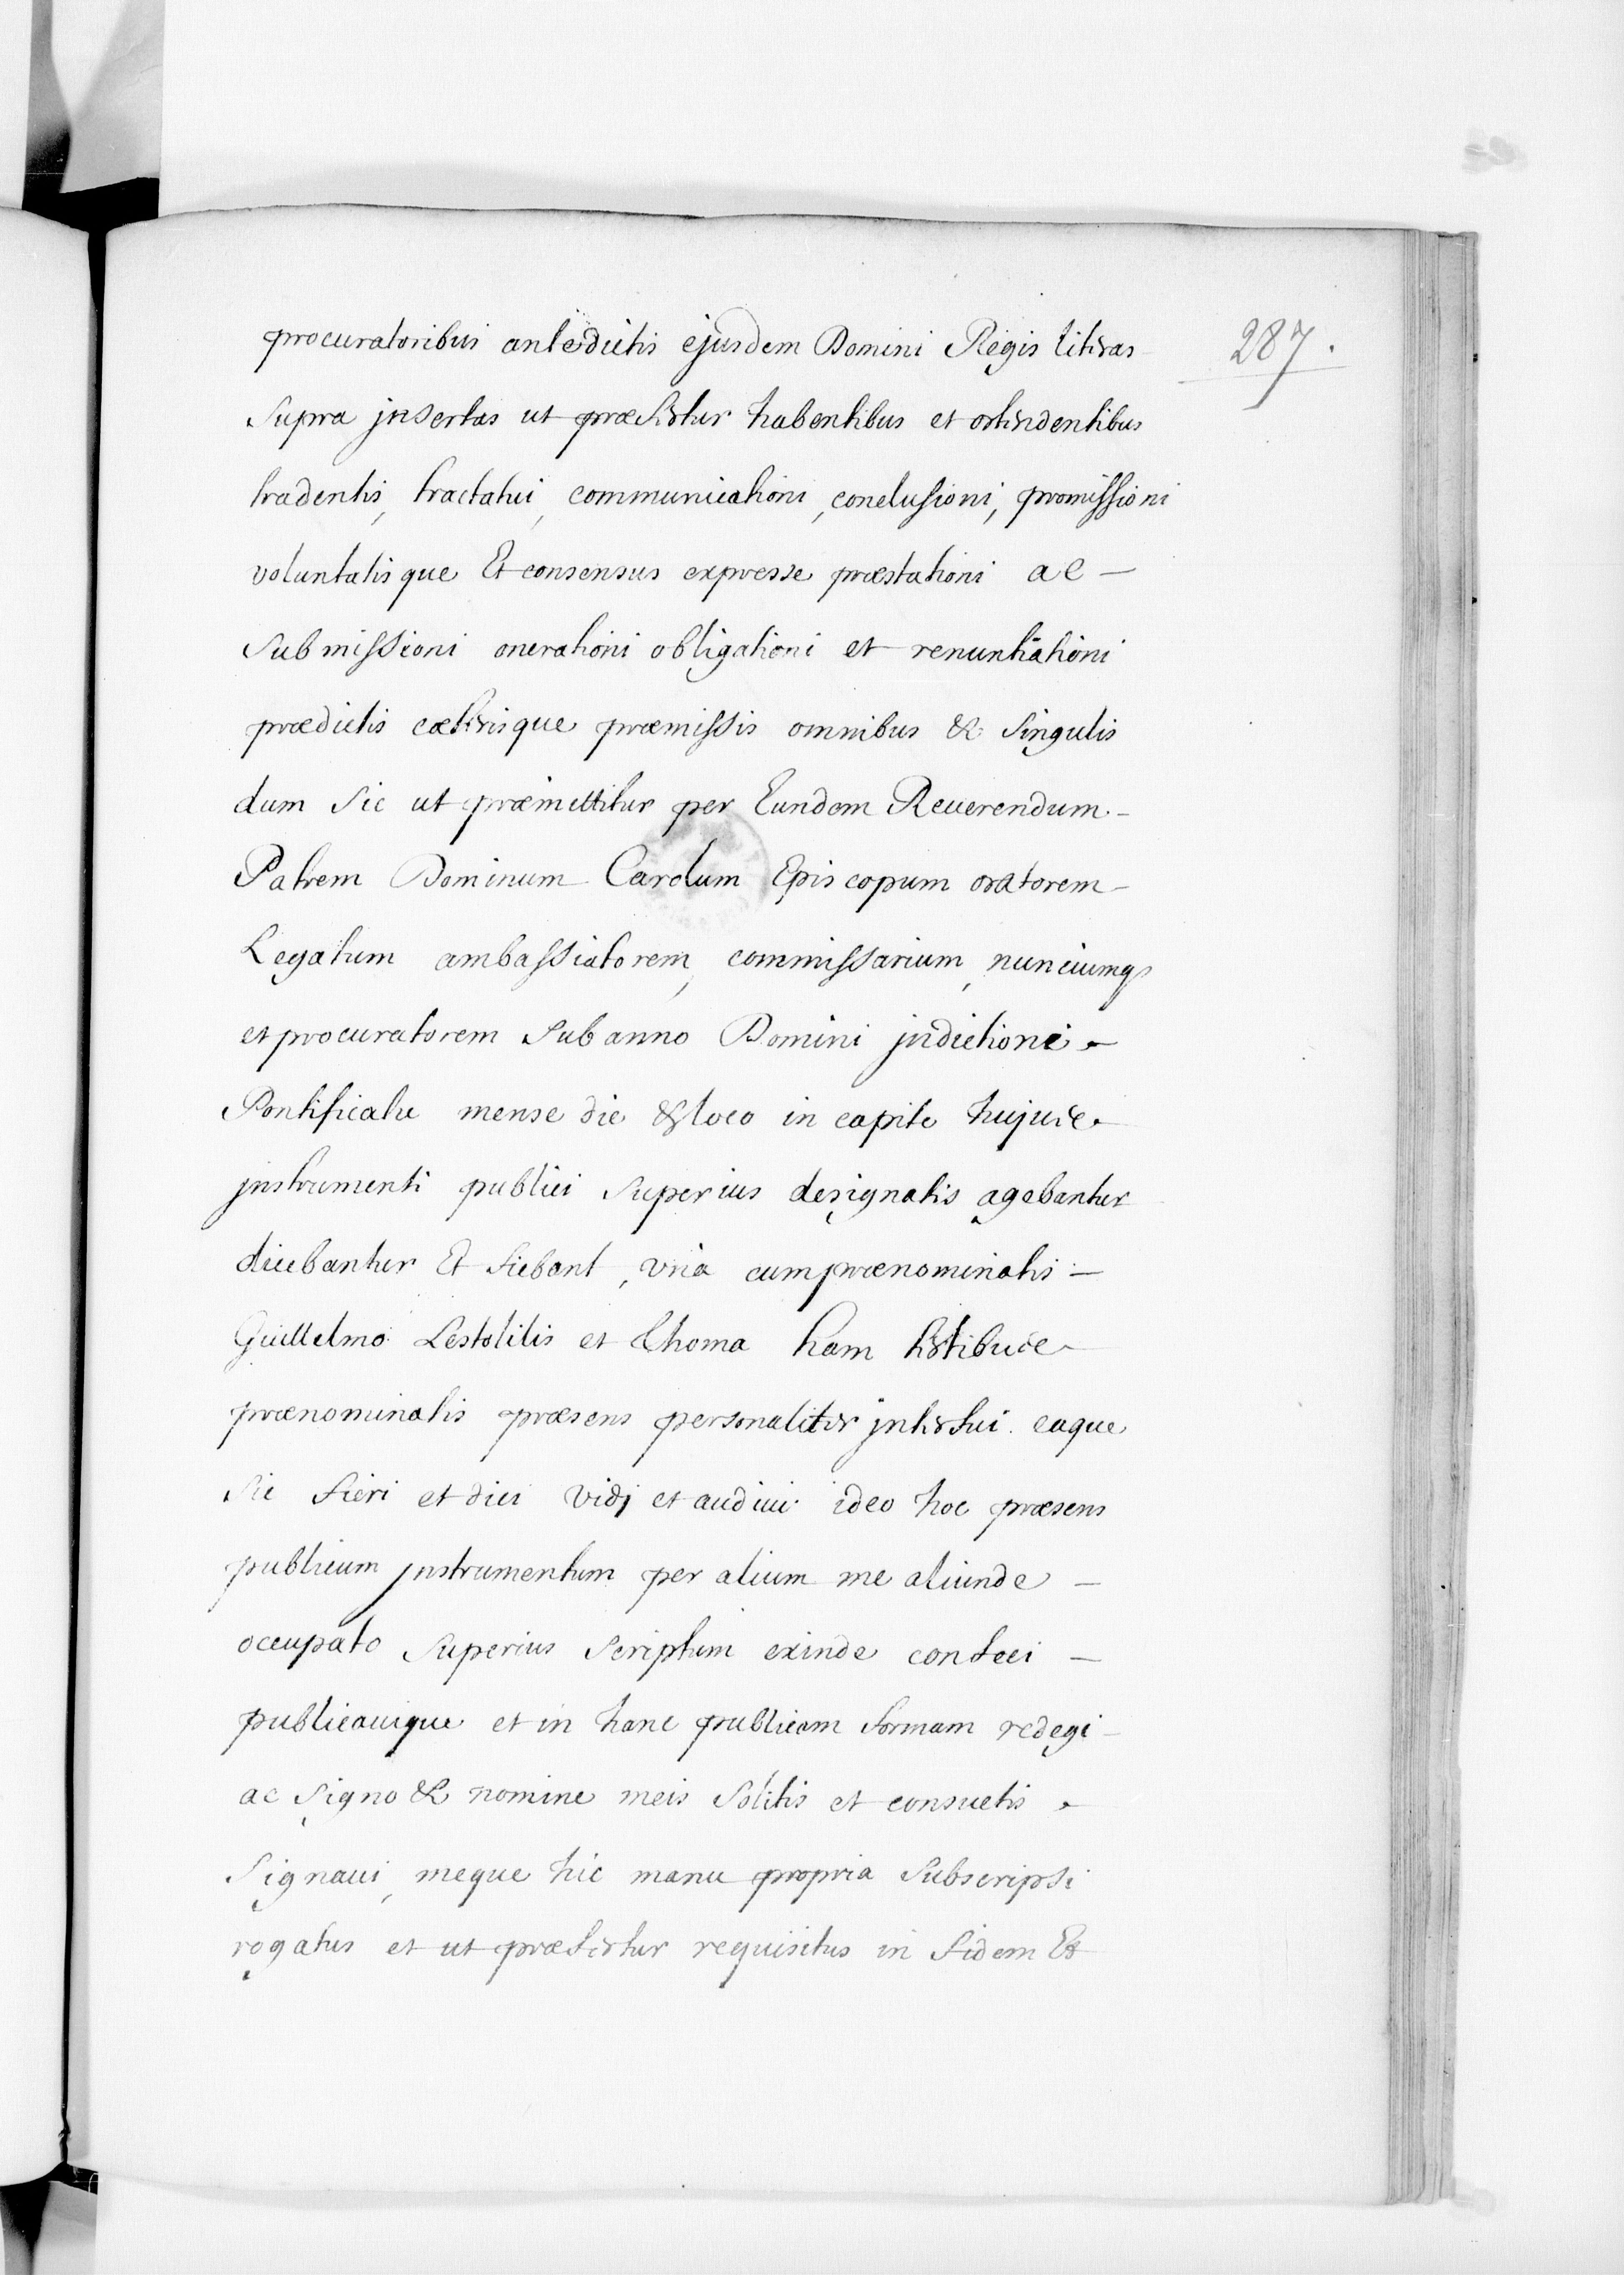 procuratoribus antedictis ejusdem Domini Regis literas
287.
supra jnsertas ut præfertur habentibus et ostendentibus
tradentis, tractatui, communicationi, conclusioni, promissioni
voluntatisque Et consensus expresse præstationi ac —
submissioni onerationi obligationi et renuntiationi
prædictis cæterisque præmissis omnibus & singulis
dum sic ut præmittitur per Eundem Reuerendum —
Patrem Dominum Carolum Episcopum oratorem —
Legatum ambassiatorem, commissarium, nunciumq
et procuratorem sub anno Domini jndictione —
Pontificatu mense die & loco in capite hujus
jnstrumenti publici superius designatis agebantur
dicebantur Et fiebant, vna cum prænominatis —
Guillelmo Lestolilis et Thoma ham testibus
prænominatis præsens personaliter jnterfui. eaque
sic fieri et dici vidj et audiui ideo hoc præsens
publicum jnstrumentum per alium me aliunde —
occupato superius scriptum exinde confeci —
publicauique et in hanc publicam formam redegi —
ac signo & nomine meis solitis et consuetis
signaui, meque hic manu propria subscripsi
rogatus et ut præfertur requisitus in fidem Et